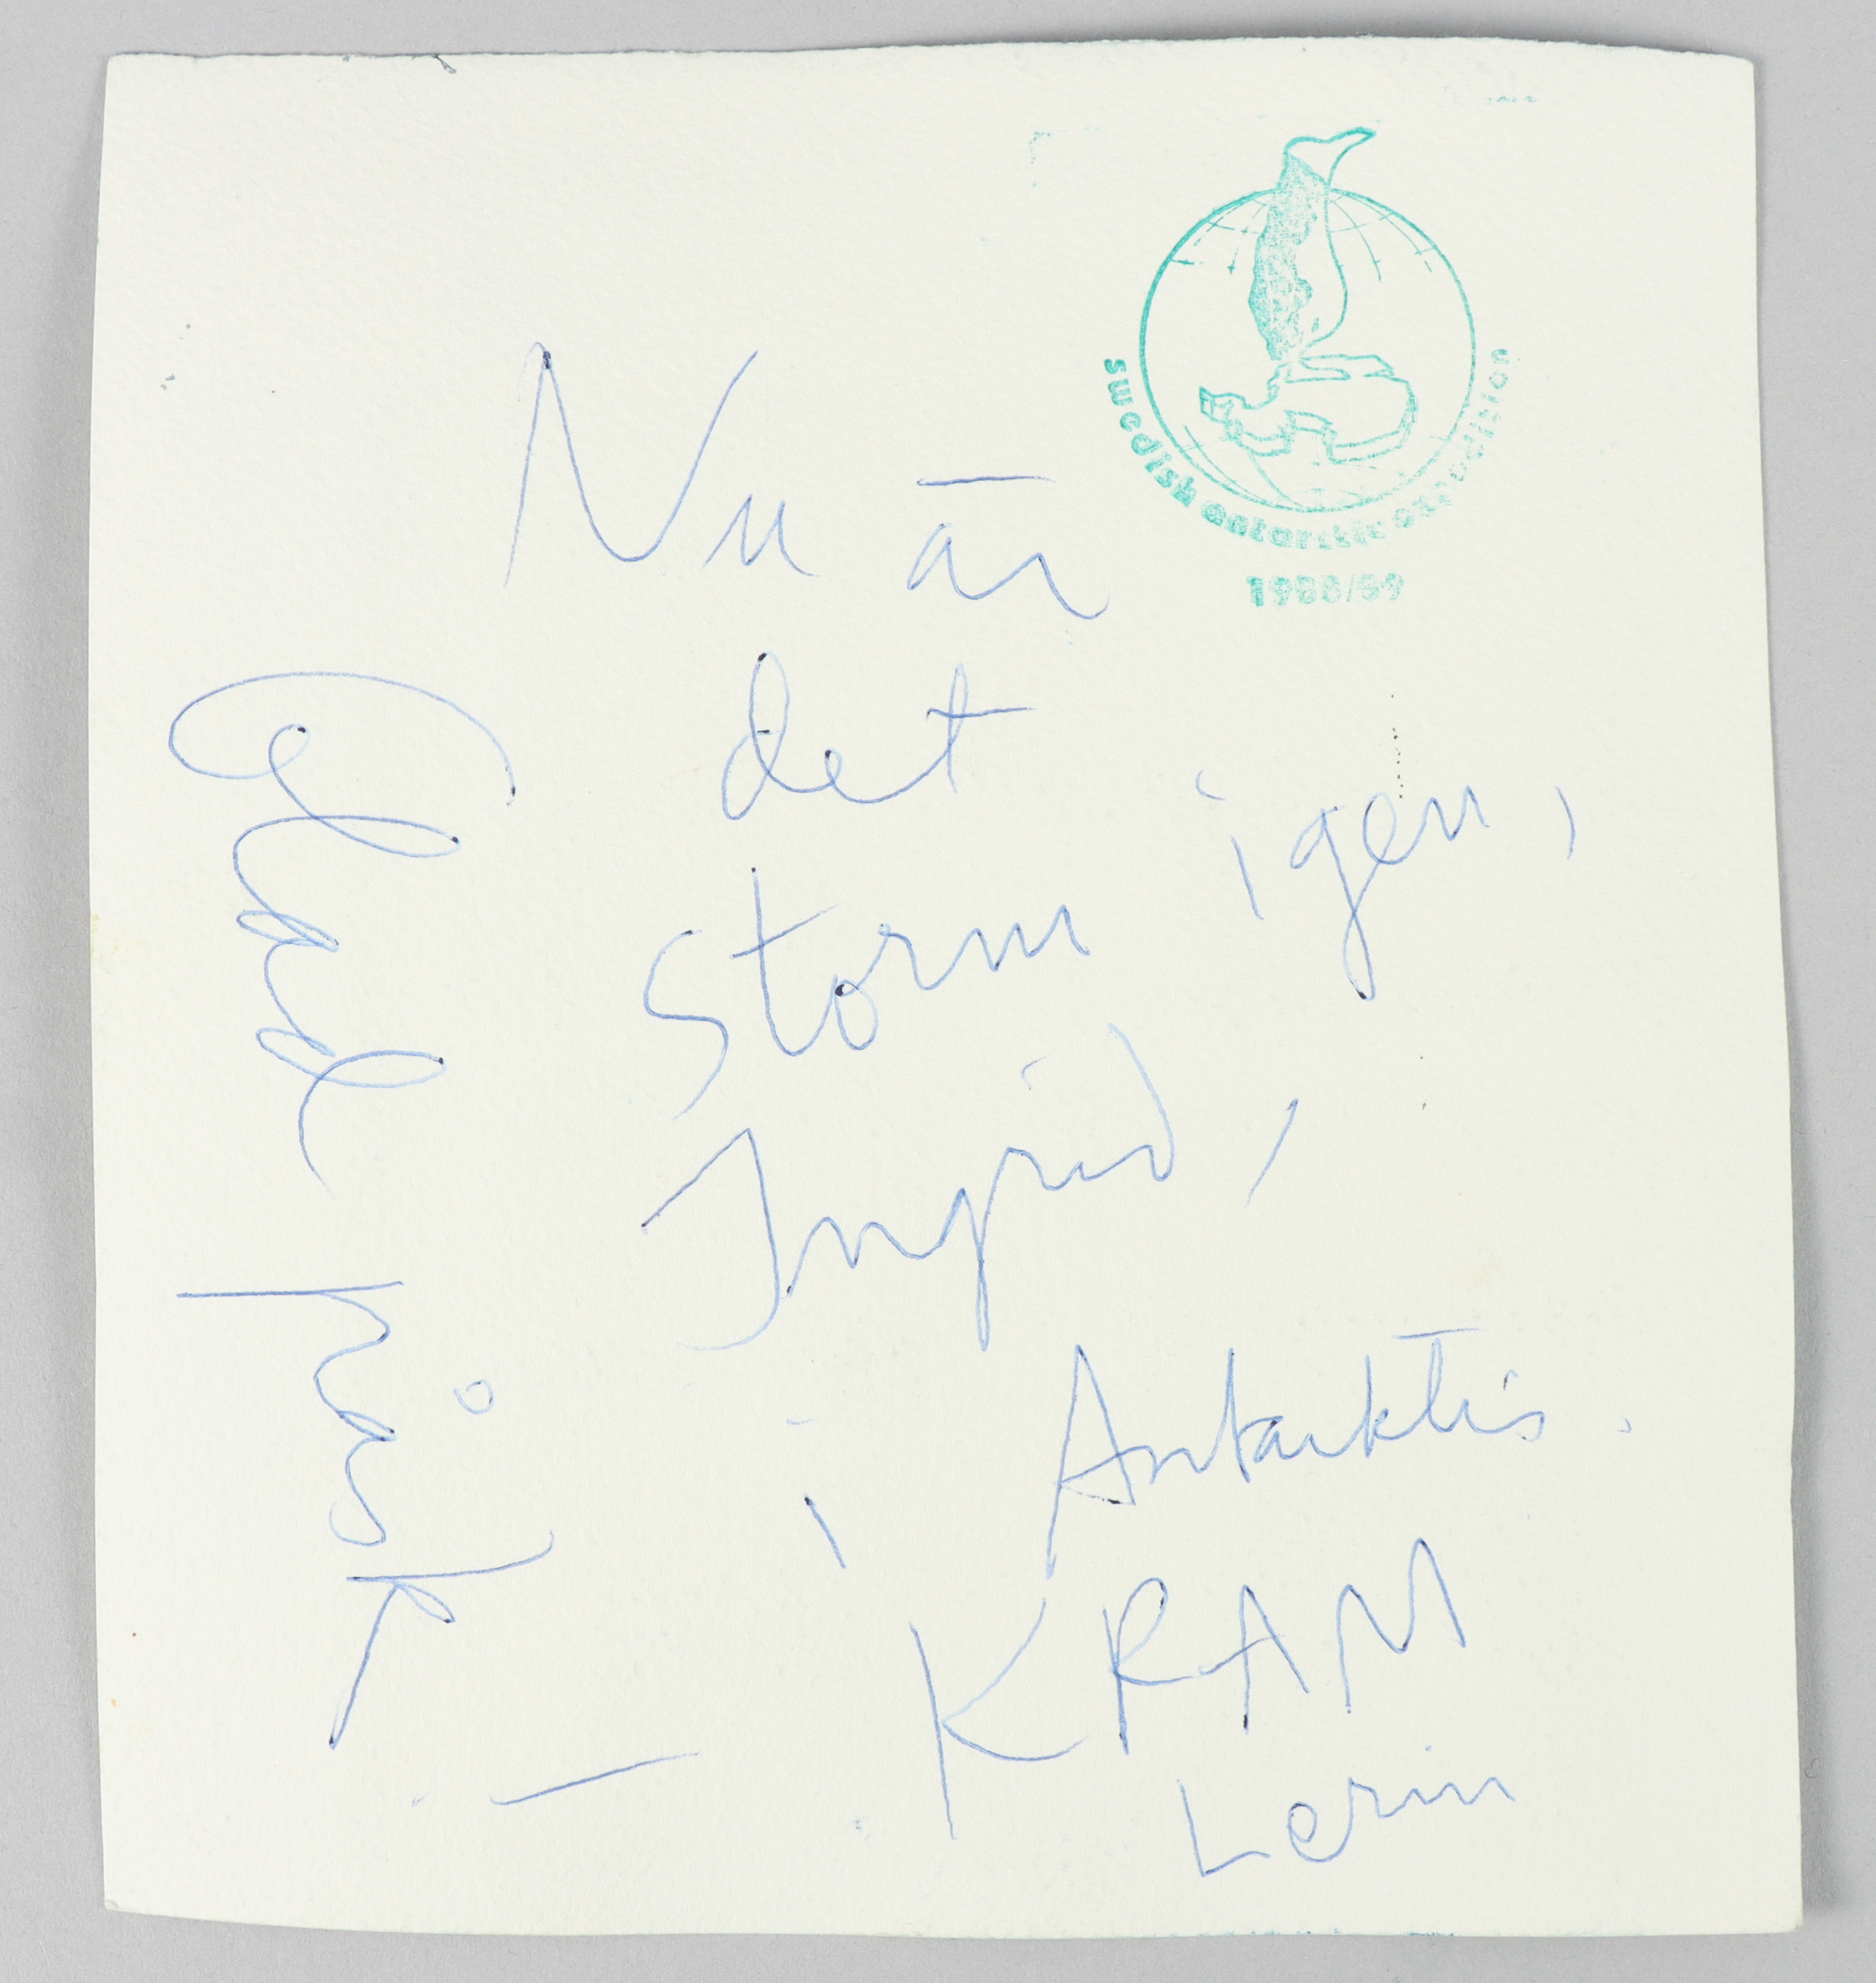 swedish antarctic expedision
1988/89
Nu är
det
storm igen,
Ingrid,
i Antarktis.
KRAM
Lerin
Glad påsk!